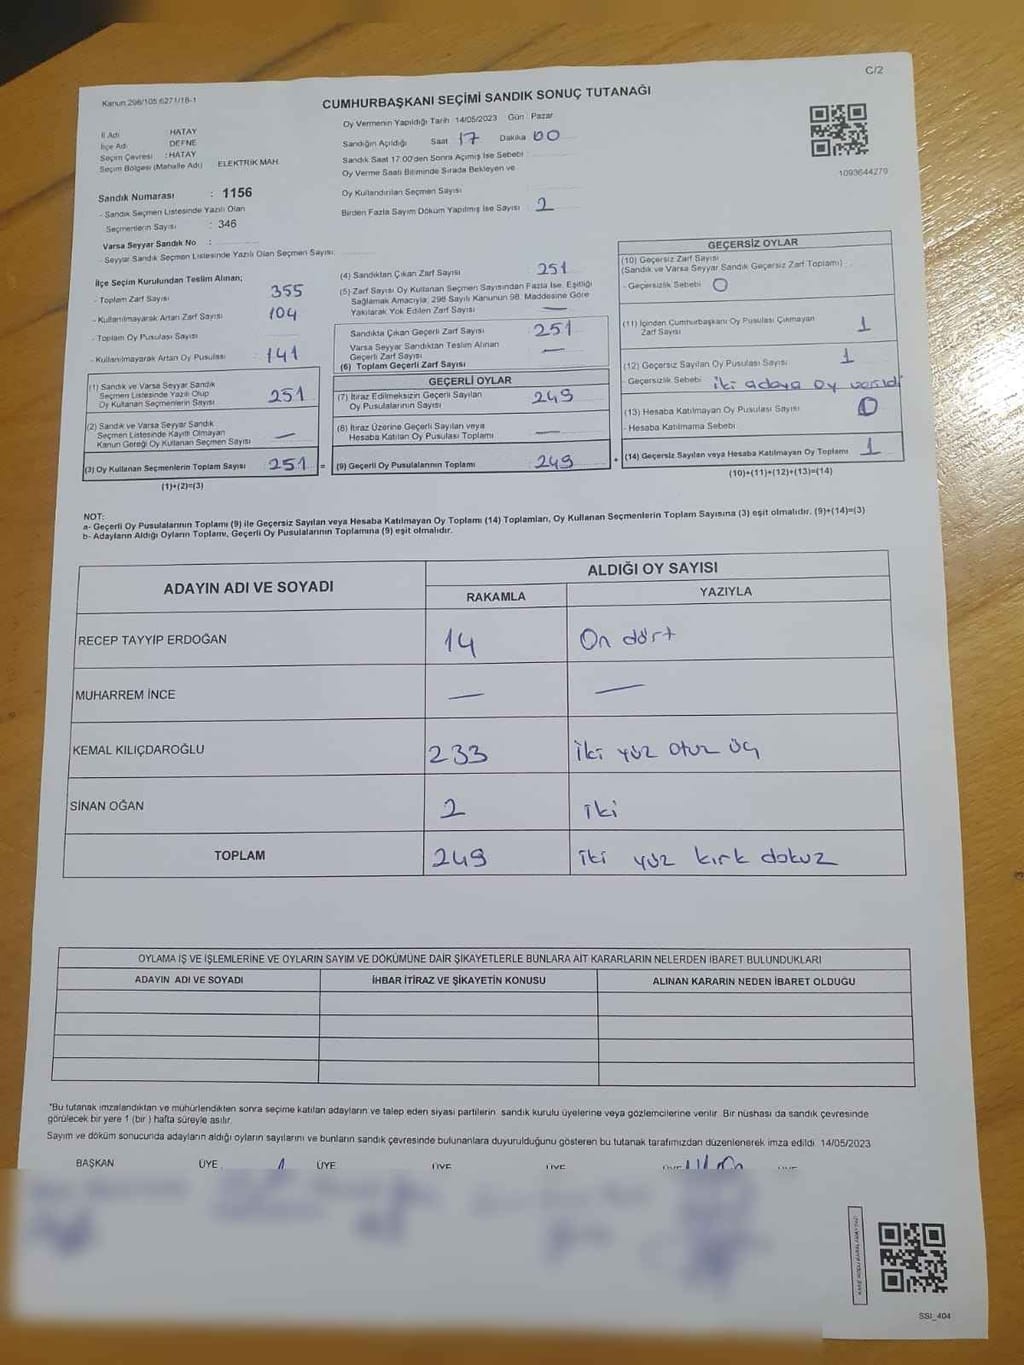 C/2
Kanun:298/105 6271/18-1
CUMHURBAŞKANI SEÇİMİ SANDIK SONUÇ TUTANAĞI
İl Adı : HATAY
İlçe Adı : DEFNE
Seçim Çevresi : HATAY
Seçim Bölgesi (Mahalle Adı) ELEKTRİK MAH.
Oy Vermenin Yapıldığı Tarih 14/05/2023 Gün : Pazar
Sandığın Açıldığı Saat 17 Dakika 00
Sandık Saat 17:00'den Sonra Açılmış İse Sebebi :
Oy Verme Saati Bitiminde Sırada Bekleyen ve
Oy Kullandırılan Seçmen Sayısı
Birden Fazla Sayım Döküm Yapılmış İse Sayısı : 2
1093644279
Sandık Numarası : 1156
- Sandık Seçmen Listesinde Yazılı Olan
Seçmenlerin Sayısı : 346
Varsa Seyyar Sandık No :
- Seyyar Sandık Seçmen Listesinde Yazılı Olan Seçmen Sayısı:
İlçe Seçim Kurulundan Teslim Alınan;
- Toplam Zarf Sayısı 355
- Kullanılmayarak Artan Zarf Sayısı 104
- Toplam Oy Pusulası Sayısı
- Kullanılmayarak Artan Oy Pusulası 141
(1) Sandık ve Varsa Seyyar Sandık
Seçmen Listesinde Yazılı Olup
Oy Kullanan Seçmenlerin Sayısı 251
(2) Sandık ve Varsa Seyyar Sandık
Seçmen Listesinde Kayıtlı Olmayan
Kanun Gereği Oy Kullanan Seçmen Sayısı —
(3) Oy Kullanan Seçmenlerin Toplam Sayısı 251 =
(1)+(2)=(3)
(4) Sandıktan Çıkan Zarf Sayısı 251
(5) Zarf Sayısı Oy Kullanan Seçmen Sayısından Fazla İse, Eşitliği
Sağlamak Amacıyla, 298 Sayılı Kanunun 98. Maddesine Göre
Yakılarak Yok Edilen Zarf Sayısı —
Sandıkta Çıkan Geçerli Zarf Sayısı 251
Varsa Seyyar Sandıktan Teslim Alınan
Geçerli Zarf Sayısı —
(6) Toplam Geçerli Zarf Sayısı
GEÇERLİ OYLAR
(7) İtiraz Edilmeksizin Geçerli Sayılan
Oy Pusulalarının Sayısı 249
(8) İtiraz Üzerine Geçerli Sayılan veya
Hesaba Katılan Oy Pusulası Toplamı —
(9) Geçerli Oy Pusulalarının Toplamı 249 +
GEÇERSİZ OYLAR
(10) Geçersiz Zarf Sayısı
(Sandık ve Varsa Seyyar Sandık Geçersiz Zarf Toplamı)
- Geçersizlik Sebebi 0
(11) İçinden Cumhurbaşkanı Oy Pusulası Çıkmayan
Zarf Sayısı 1
(12) Geçersiz Sayılan Oy Pusulası Sayısı 1
- Geçersizlik Sebebi iki adaya oy verildi
(13) Hesaba Katılmayan Oy Pusulası Sayısı 0
- Hesaba Katılmama Sebebi
(14) Geçersiz Sayılan veya Hesaba Katılmayan Oy Toplamı 1
(10)+(11)+(12)+(13)=(14)
NOT:
a- Geçerli Oy Pusulalarının Toplamı (9) ile Geçersiz Sayılan veya Hesaba Katılmayan Oy Toplamı (14) Toplamları, Oy Kullanan Seçmenlerin Toplam Sayısına (3) eşit olmalıdır. (9)+(14)=(3)
b- Adayların Aldığı Oyların Toplamı, Geçerli Oy Pusulalarının Toplamına (9) eşit olmalıdır.
ADAYIN ADI VE SOYADI
ALDIĞI OY SAYISI
RAKAMLA YAZIYLA
RECEP TAYYİP ERDOĞAN 14 On dört
MUHARREM İNCE — —
KEMAL KILIÇDAROĞLU 233 İki yüz otuz üç
SİNAN OĞAN 2 İki
TOPLAM 249 İki yüz kırk dokuz
OYLAMA İŞ VE İŞLEMLERİNE VE OYLARIN SAYIM VE DÖKÜMÜNE DAİR ŞİKAYETLERLE BUNLARA AİT KARARLARIN NELERDEN İBARET BULUNDUKLARI
ADAYIN ADI VE SOYADI İHBAR İTİRAZ VE ŞİKAYETİN KONUSU ALINAN KARARIN NEDEN İBARET OLDUĞU
*Bu tutanak imzalandıktan ve mühürlendikten sonra seçime katılan adayların ve talep eden siyasi partilerin sandık kurulu üyelerine veya gözlemcilerine verilir. Bir nüshası da sandık çevresinde
görülecek bir yere 1 (bir ) hafta süreyle asılır.
Sayım ve döküm sonucunda adayların aldığı oyların sayılarını ve bunların sandık çevresinde bulunanlara duyurulduğunu gösteren bu tutanak tarafımızdan düzenlenerek imza edildi. 14/05/2023
BAŞKAN ÜYE ÜYE ÜYE ÜYE ÜYE
SSI_404